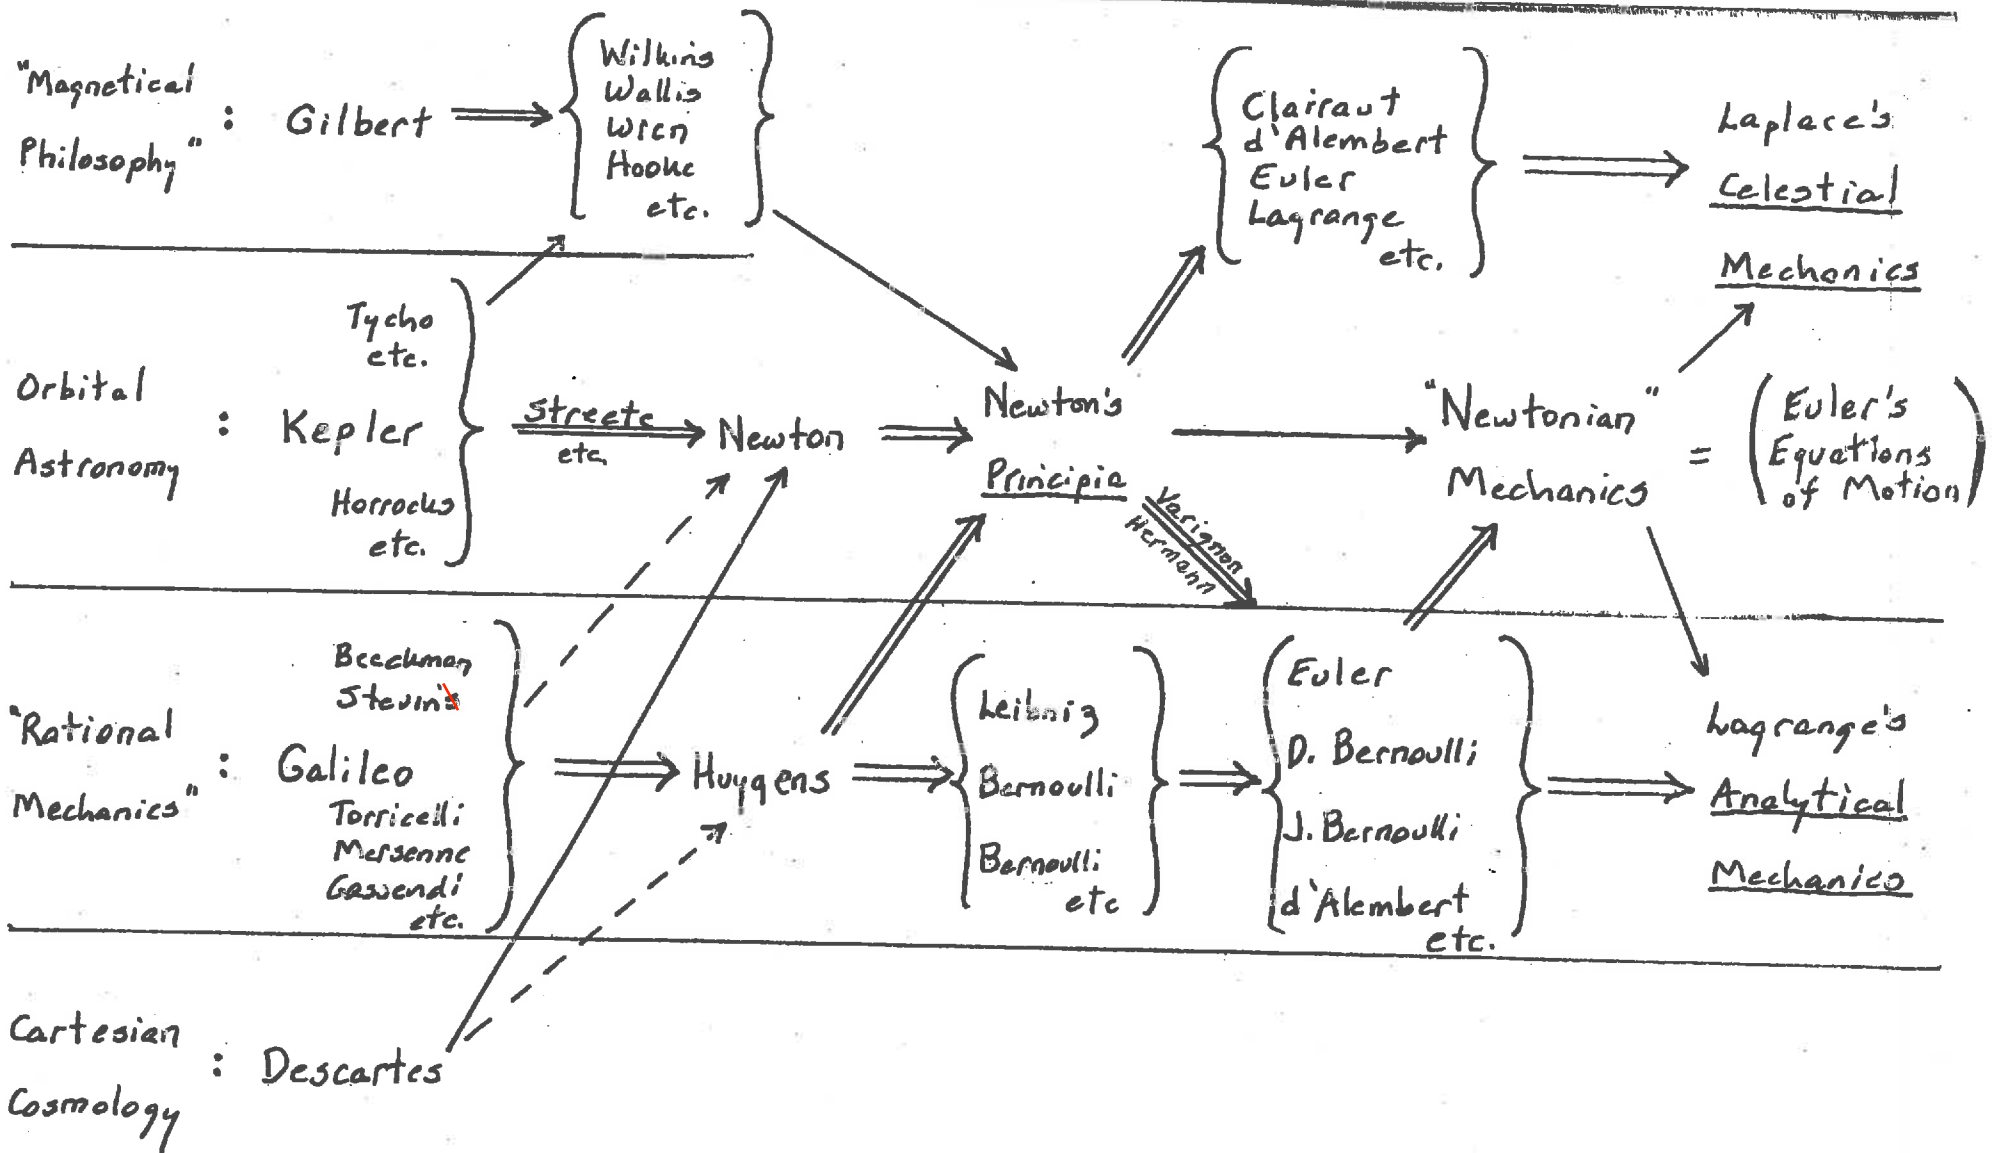 "Magnetical
Philosophy"
:
Gilbert
Wilkins
Wallis
Wren
Hooke
etc.
Clairaut
d'Alembert
Euler
Lagrange
etc.
Laplace's
Celestial
Mechanics
Orbital
Astronomy
:
Tycho
etc.
Kepler
Horrocks
etc.
Streete
etc.
Newton
Newton's
Principia
Varignon
Hermann
"Newtonian"
Mechanics
=
(Euler's
Equations
of Motion)
"Rational
Mechanics"
:
Beeckman
Stevin's
Galileo
Torricelli
Mersenne
Gassendi
etc.
Huygens
Leibniz
Bernoulli
Bernoulli
etc
Euler
D. Bernoulli
J. Bernoulli
d'Alembert
etc.
Lagrange's
Analytical
Mechanics
Cartesian
Cosmology
:
Descartes